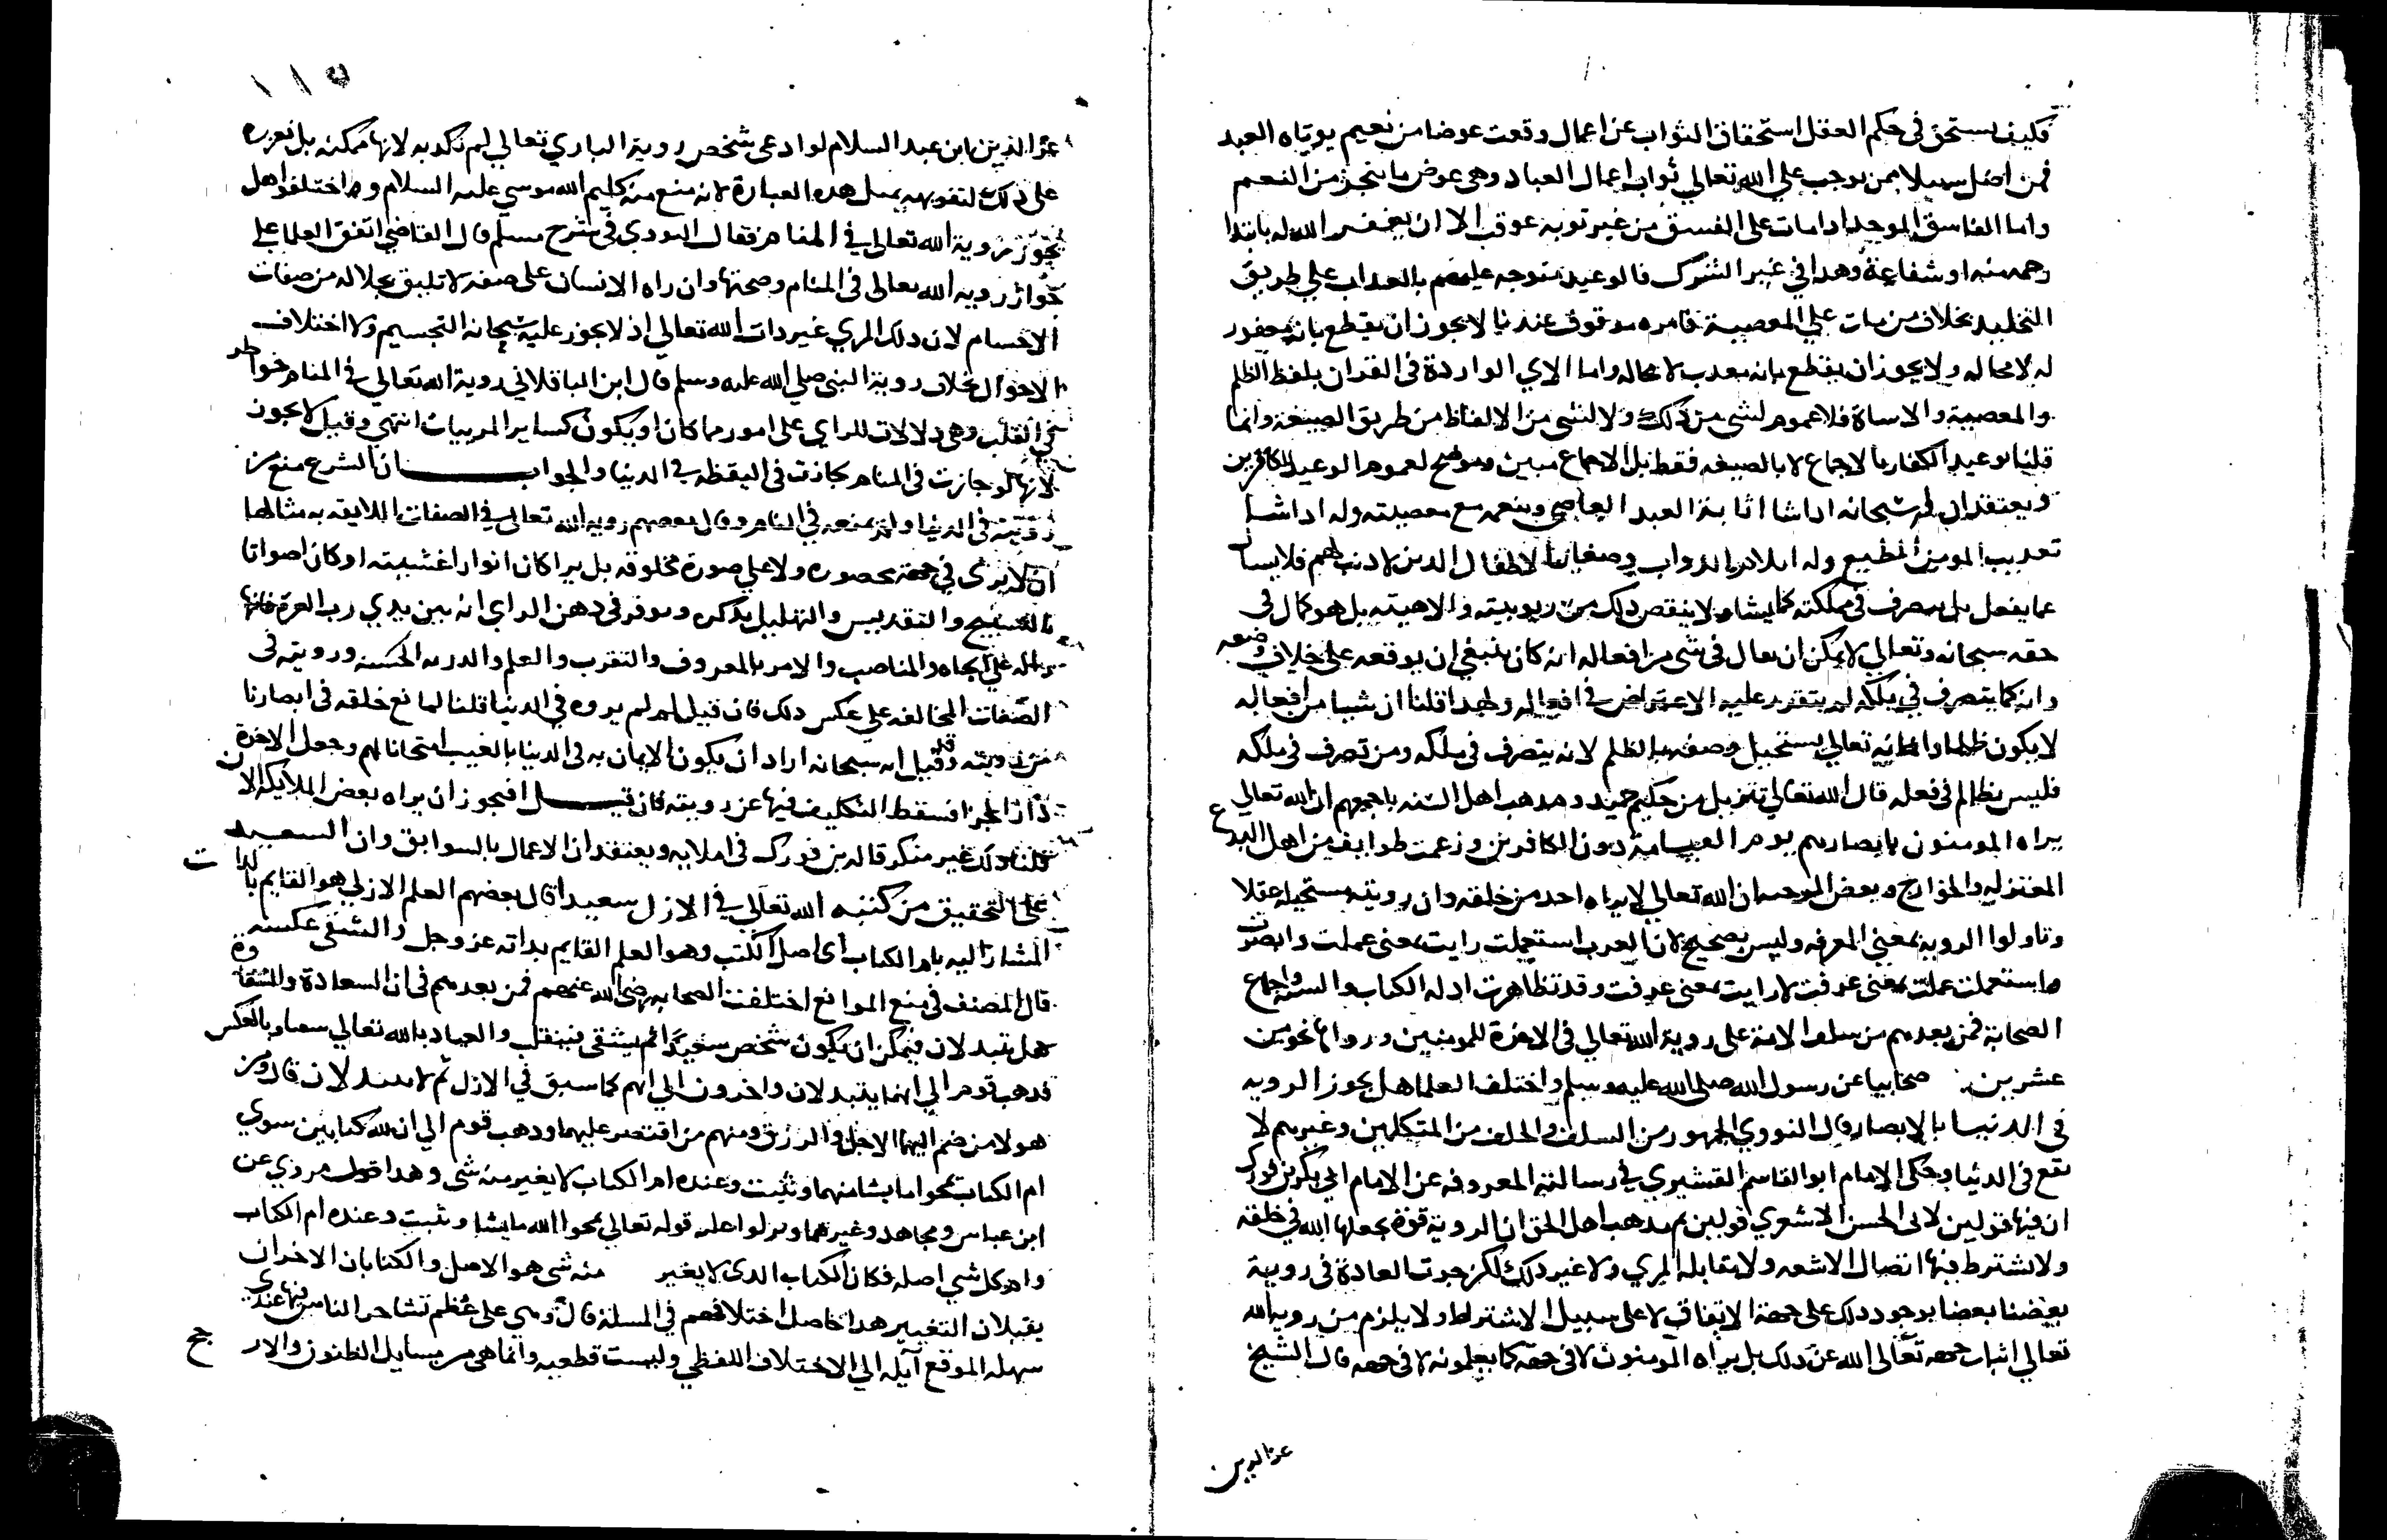 فكيف يستحق في حكم العقل استحقاق الثواب عن اعمال وقعت عوضا من نعيم يوتاه العبد
فمن اضل سبيلا ممن يوجب على الله تعالي ثواب اعمال العباد وهي عوض ما ينجز من النعم
واما الفاسق الموحد اذا مات على الفسق من غير توبه عوقب الا ان يغفر الله له بابتدا
رحمه منه او شفاعة وهذا في غير الشرك فالوعيد متوجه عليهم بالعداب علي طريق
التخليد بخلاف من مات علي المعصية فامره موقوف عندنا لا يجوز ان يقطع بانه مغفور
له لا محاله ولا يجوز ان يقطع بانه معدب لا محاله واما الاي الواردة في القران بلفظ الظلم
والمعصية والاساة فلا عموم لشي من ذلك ولا لشي من الالفاظ من طريق الصيغة وانما
قلنا بوعيد الكفار بالاجماع لا بالصيغه فقط بل الاجماع مبين وموضح لعموم الوعيد للكافرين
ويعتقد ان له سبحانه اذا شا اثابة العبد العاصي وينعمه مع معصيته وله اذا شا
تعديب المومن المطيع وله ايلام الدواب وصغار الاطفال الدين لا دنب لهم فلا يسال
عما يفعل بل يتصرف في مملكته كما يشا ولا ينقص ذلك من ربوبيته والاهيته بل هو كمال في
حقه سبحانه وتعالي لا يمكن ان يقال في شي من افعاله انه كان ينبغي ان يوقعه على خلاف وضعه
وانه كما يتصرف في ملكه لم يتقرر عليه الاعتراض في افعاله ولهدا قلنا ان شيا من افعاله
لا يكون ظلما وانه تعالي يستحيل وصفه بالظلم لانه يتصرف في ملكه ومن تصرف في ملكه
فليس بظالم في فعله قال الله تعالي تنزيل من حكيم حميد ومدهب اهل السنه باجمعهم ان الله تعالي
يراه المومنون بابصارهم يوم القيامة دون الكافرين وزعمت طوايف من اهل البدع
المعتزله والخوارج وبعض المرجيه ان الله تعالي لا يراه احد من خلقه وان رويته مستحيلة عقلا
وتاولوا الرويه بمعني المعرفه وليس بصحيح لان العرب استعملت رايت بمعنى علمت وابصرت
واستعملت علمت بمعنى عرفت لا رايت بمعنى عرفت وقد تظاهرت ادلة الكتاب والسنه واجماع
الصحابة فمن بعدهم من سلف الامة على روية الله تعالي في الاخرة للمومنين ورواها نحو من
عشرين صحابيا عن رسول الله صلى الله عليه وسلم واختلف العلما هل يجوز الرويه
في الدنيا بالابصار قال النووي الجمهور من السلف والخلف من المتكلمين وغيرهم لا
تقع في الدنيا وحكى الامام ابو القاسم القشيري في رسالته المعروفه عن الامام ابي بكر بن فورك
ان فيها قولين لابي الحسن الاشعري قولين ثم مدهب اهل الحق ان الروية قوة يجعلها الله في خلقه
ولا يشترط فيها اتصال الاشعه ولا مقابلة المري ولا غير دلك لكن جرت العادة في روية
بعضنا بعضا بوجود دلك على جهة الاتفاق لا على سبيل الاشتراط ولا يلزم من رويه الله
تعالي اثبات جهه تعالي الله عن ذلك بل يراه المومنون لا في جهة كما يعلمونه لا في جهه قال الشيخ
عز الدين
١١٥
عز الدين ابن عبد السلام لو ادعى شخص روية الباري تعالي لم نكدبه لانها ممكنه بل نعزره
على ذلك لتفوهه بمثل هده العبارة لانه منع منه كليم الله موسي عليه السلام واختلف اهل
تجوز روية الله تعالى في المنام فقال النووي في شرح مسلم قال القاضي اتفق العلما علي
جواز رويه الله تعالى في المنام وصحتها وان راه الانسان على صفه لا تليق بجلاله من صفات
الاجسام لان دلك المري غير ذات الله تعالي اذ لا يجوز عليه سبحانه التجسيم ولا اختلاف
الاحوال بخلاف روية النبي صلي الله عليه وسلم قال ابن الباقلاني روية الله تعالي في المنام خواطر
في القلب وهي دلالات للراي على امور مما كان او يكون كساير المرييات انتهي وقيل لا يجوز
لانها لو جازت في المنام لجازت في اليقظه في الدنيا والجواب ان الشرع منع من
رويته في الدنيا ولم يمنعه في المنام وقال بعضهم رويه الله تعالى في الصفات اللايقه به مثالها
ان لا يرى في جهة محصوره ولا علي صورة مخلوقه بل يراه كان انوارا غشيته او كان اصواتا
بالتسبيح والتقديس والتهليل يدكره وموقر في ذهن الراي انه بين يدي رب العزة فانها
داله علي الجاه والمناصب والامر بالمعروف والتقرب والعلم والدريه الحسنه ورويته في
الصفات المخالفه علي عكس دلك فان قيل لم لم يروه في الدنيا قلنا لمانع خلقه في ابصارنا
من رويته وقد قيل انه سبحانه اراد ان يكون الايمان به في الدنيا بالغيب امتحانا لهم وجعل الاخرة
دار الجزا فسقط التكليف فيها عن رويته فان قيل افيجوز ان يراه بعض الملايكه الان
قلنا دلك غير منكر قاله بن فورك في املايه ويعتقد ان الاعمال بالسوابق وان السعيد
على التحقيق من كتبه الله تعالي في الازل سعيدا قال بعضهم العلم الازلي هو القايم بالذات
المشار اليه بام الكتاب اي اصل الكتب وهو العلم القايم بداته عز وجل والشقي عكسه
قال المصنف في منع الموانع اختلفت الصحابه رضي الله عنهم فمن بعدهم في ان السعادة والشقاوة
هل تتبدلان فيمكن ان يكون شخص سعيدا ثم يشقى فينقلب والعياد بالله تعالي سقيا وبالعكس
فدهب قوم الي انهما يتبدلان واخرون الي انهم كما سبق في الازل ثم لا يتبدلان قال ومن
هولا من ضم اليهما الاجل والرزق ومنهم من اقتصر عليهما ودهب قوم الي ان لله كتابين سوي
ام الكتاب يمحوا ما يشا منهما ويثبت وعنده ام الكتاب لا يغير منه شي وهدا قول مروي عن
ابن عباس ومجاهد وغيرهما ونزلوا عليه قوله تعالي يمحوا الله ما يشا ويثبت وعنده ام الكتاب
وام كل شي اصله فكان الكتاب الدى لا يغير منه شي هو الاصل والكتابان الاخران
يقبلان التغيير هدا حاصل اختلافهم في المسلة قال وهي على عظم تشاجر الناس فيها عندي
سهله الموقع آيله الي الاختلاف اللفظي وليست قطعيه وانما هي من مسايل الظنون والار جح